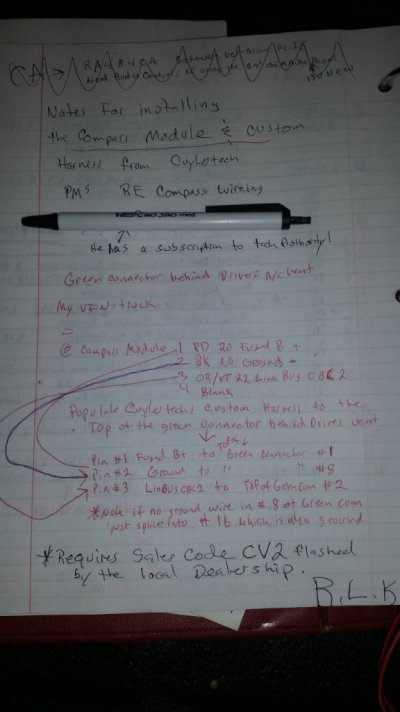 CA → RA4 840A Software version 14.2
Need Audio Controls if using the
Notes For installing
the Compass Module & custom
Harness from Coyletech
PMs RE Compass wireing
He has a subscription to tech Authority!
Green connector behind Drivers A/C vent
My VIN truck
=
@ Compass Module 1 RD 20 Fused B +
2 BK 20 Ground -
3 OR/VT 22 Lin Bus CBC 2
4 Blank
Populate Coyletechs Custom Harness to the
Top of the green connector behind Drives vent
Top of
Pin #1 Fused B+ to Green Connector #1
Pin #2 Ground to " " #8
Pin #3 Lin Bus CBC2 to Top of Green Conn #2
*Note if no ground wire in #8 of Green conn
just splice into #16 which is also ground
*Requires Sales Code CV2 flashed
by the local Dealership.
R.L.K